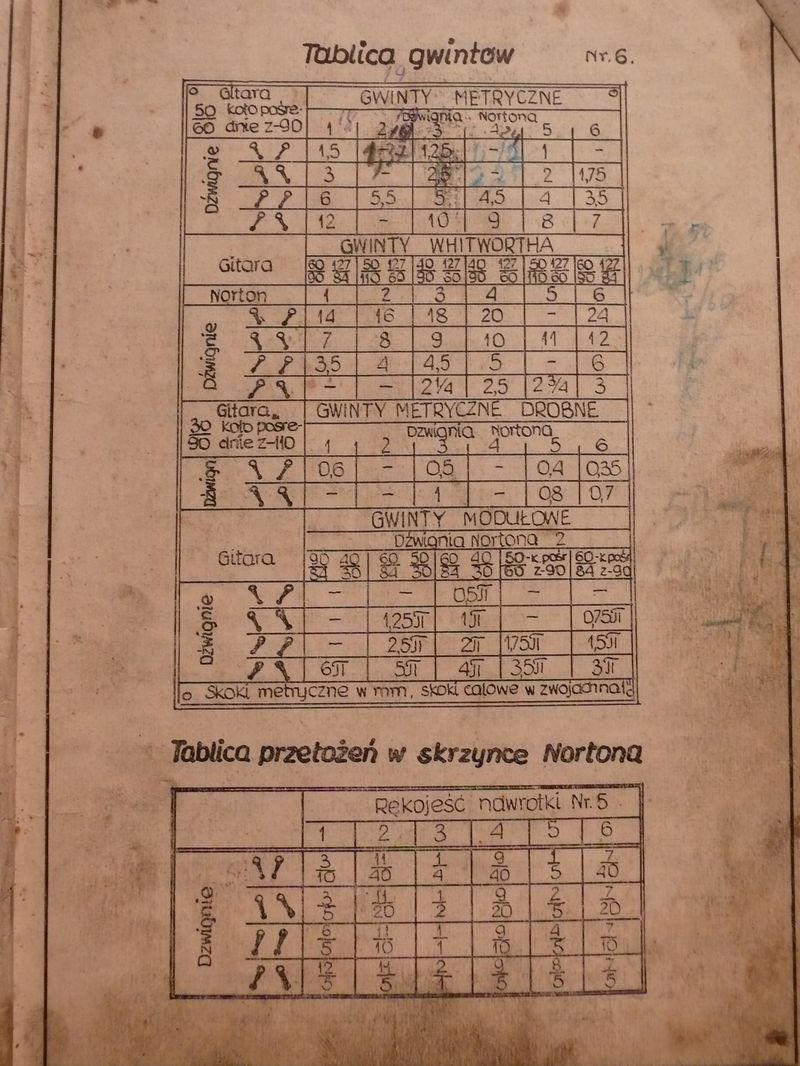 Tablica gwintów Nr.6.
Gitara GWINTY METRYCZNE
50 koło pośre- Dźwignia Nortona
60 dnie z-90 1 2 3 5 6
Dźwignie 1,5 1,25 - 1 -
3 - 2 1,75
6 5,5 5 4,5 4 3,5
12 - 10 9 8 7
GWINTY WHITWORTHA
Gitara 60 127 50 127 40 127 40 127 50 127 60 127
90 84 110 60 90 60 90 60 110 60 90 84
Norton 1 2 3 4 5 6
Dźwignie 14 16 18 20 - 24
7 8 9 10 11 12
3,5 4 4,5 5 - 6
- - 2 1/4 2,5 2 3/4 3
Gitara GWINTY METRYCZNE DROBNE
30 koło pośre- Dźwignia Nortona
90 dnie z-110 1 2 3 4 5 6
Dźwign 0,6 - 0,5 - 0,4 0,35
- - 1 - 0,8 0,7
GWINTY MODUŁOWE
Dźwignia Nortona 2
Gitara 90 40 60 50 60 40 50-k.pośr 60-k.pośr
84 30 84 30 84 30 60 z-90 84 z-90
Dźwignie - - 0,5π - -
- 1,25π 1π - 0,75π
- 2,5π 2π 1,75π 1,5π
6π 5π 4π 3,5π 3π
Skoki metryczne w mm, skoki calowe w zwojach na 1"
Tablica przełożeń w skrzynce Nortona
Rękojeść nawrotki Nr.5
1 2 3 4 5 6
Dźwignie 3/10 11/40 1/4 9/40 1/5 7/40
3/5 11/20 1/2 9/20 2/5 7/20
6/5 11/10 1/1 9/10 4/5 7/10
12/5 11/5 2/1 9/5 8/5 7/5